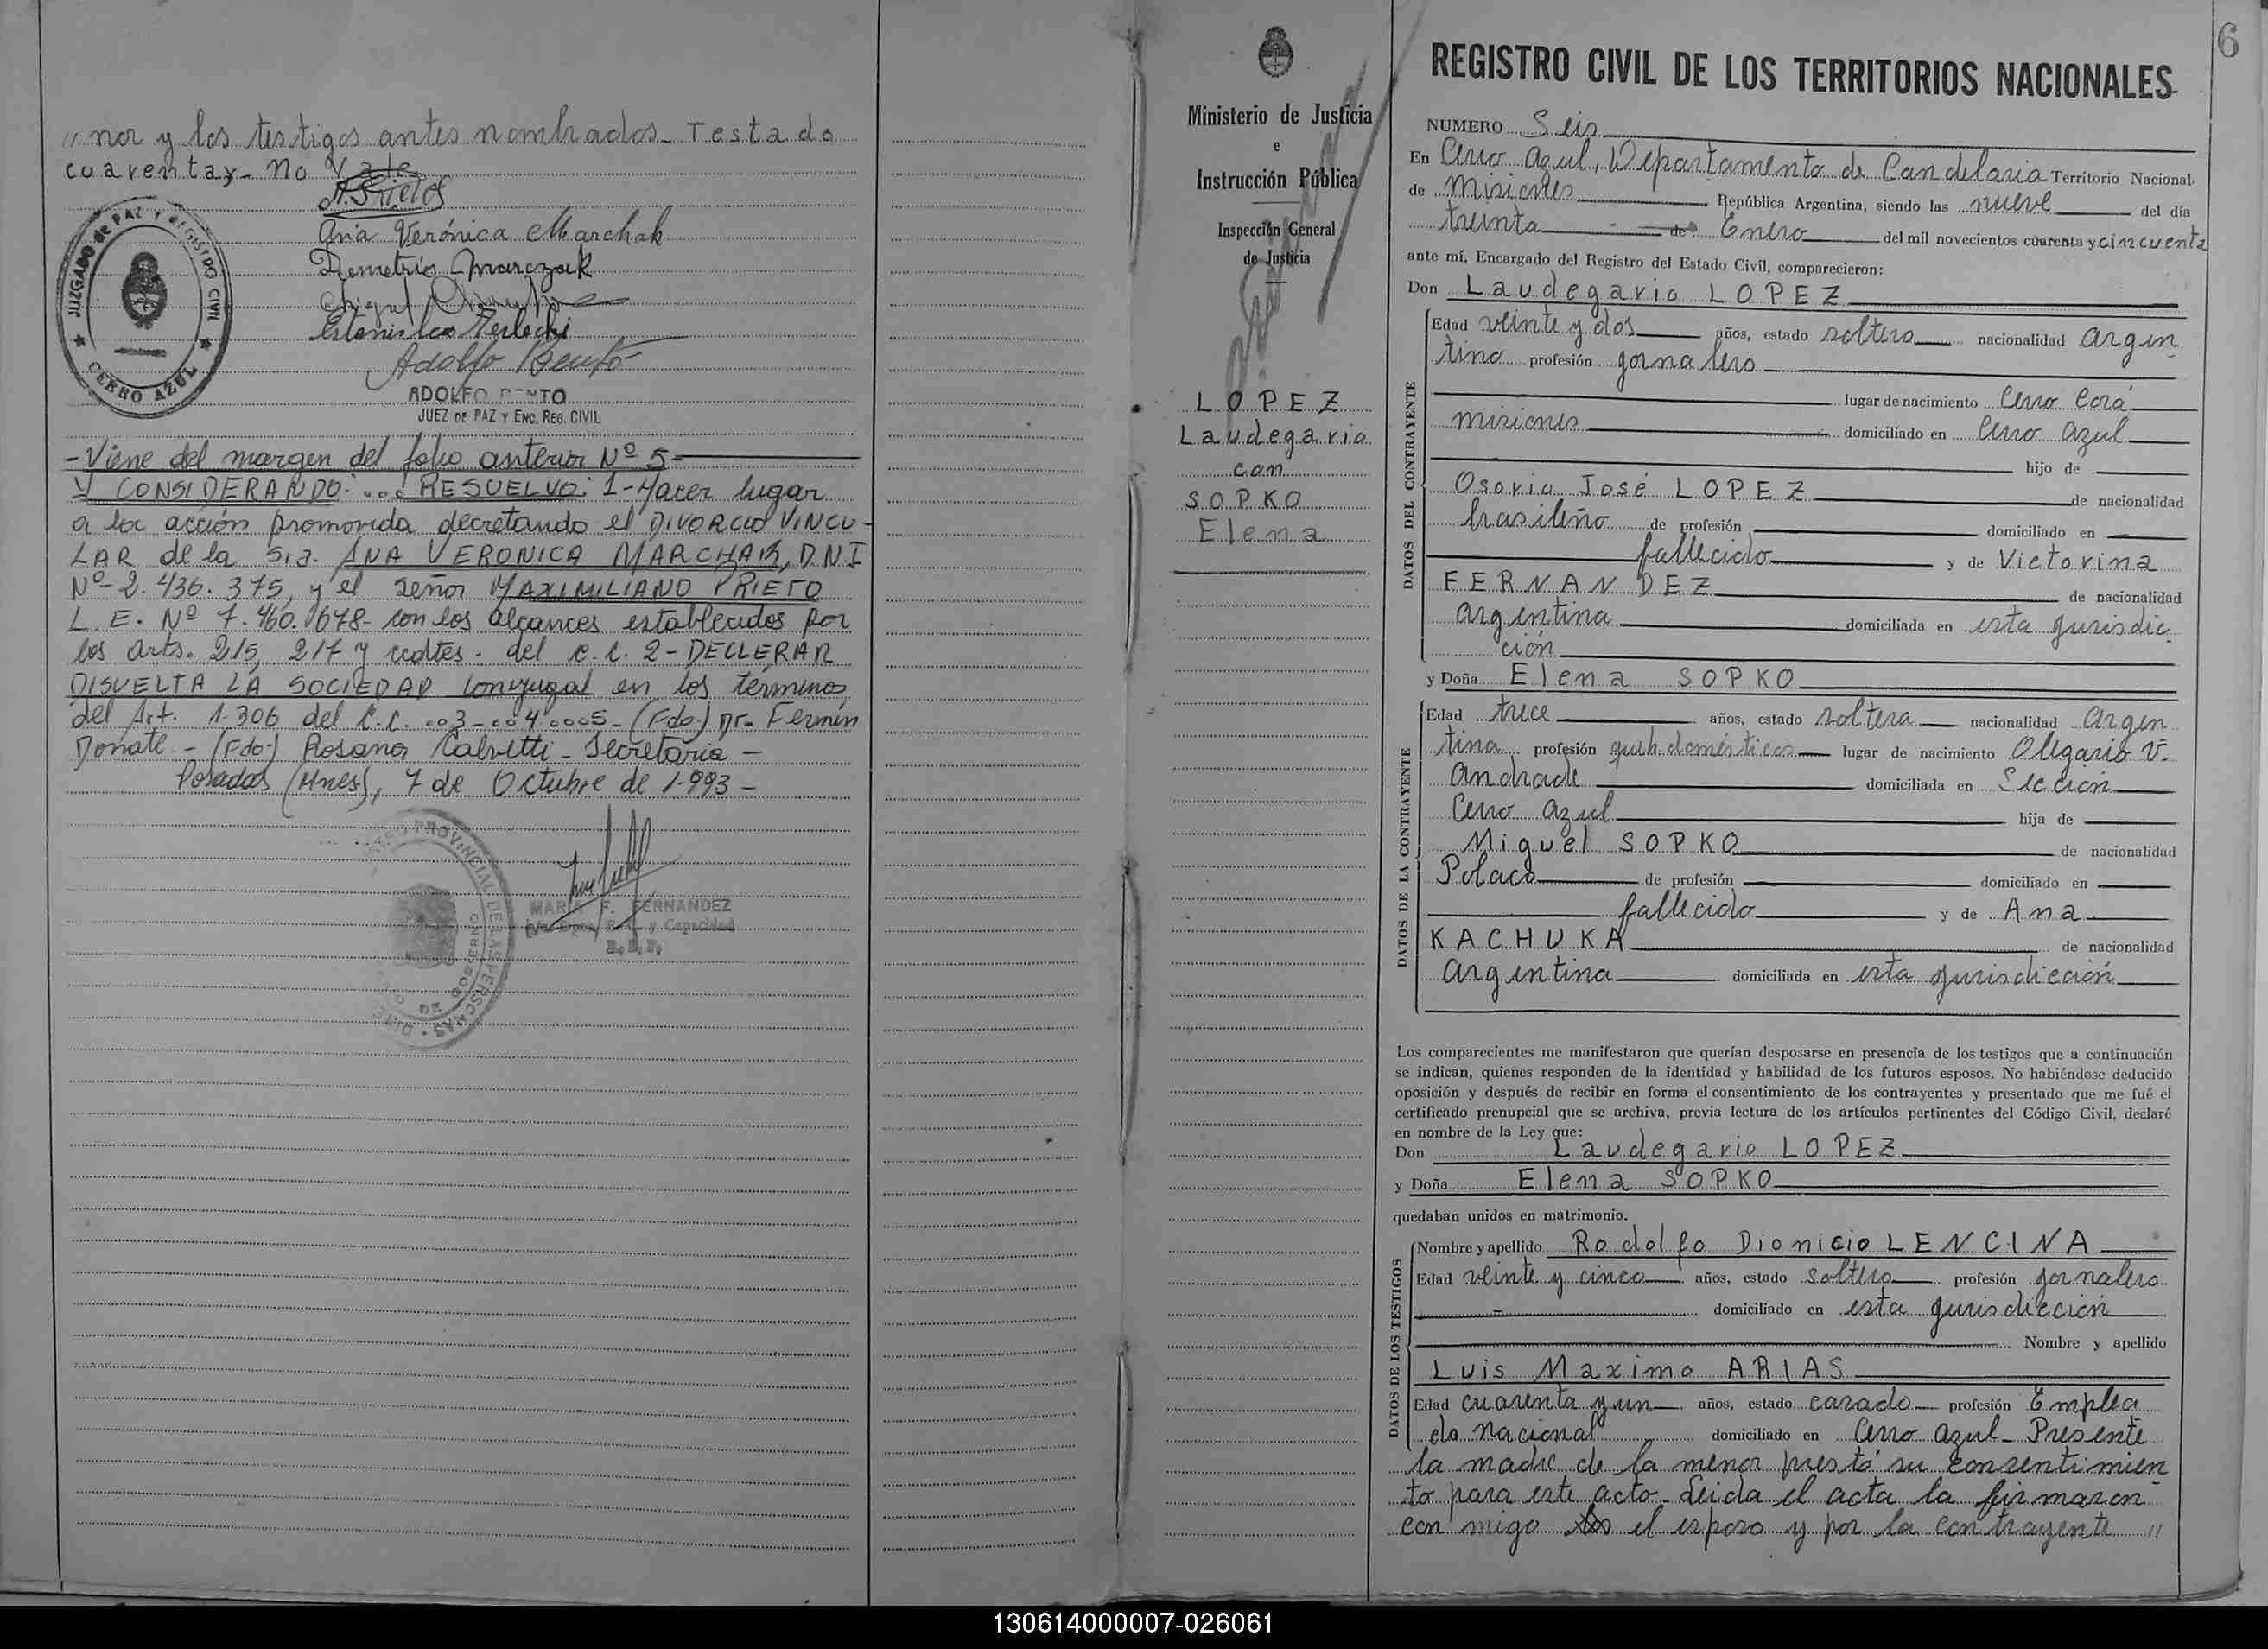 "nor y los testigos antes nombrados - Testado
cuarentay - no vale
Ana Verónica Marchak
Demetrio Marczak
Estanislao Terlecki
Adolfo Bento
ADOLFO BENTO
JUEZ DE PAZ Y ENC. REG. CIVIL
JUZGADO de PAZ Y REGISTRO CIVIL
★ CERRO AZUL ★
- Viene del margen del folio anterior Nº 5 -
Y CONSIDERANDO: ... RESUELVO: 1 - Hacer lugar
a la acción promovida decretando el DIVORCIO VINCU-
LAR de la Sra. ANA VERONICA MARCHAK, D.N.I
Nº 2.436.375, y el señor MAXIMILIANO PRIETO
L.E. Nº 7.460.678 - con los alcances establecidos por
los arts. 215, 217 y ccdtes. del C.C. 2 - DECLERAR
DISUELTA LA SOCIEDAD conyugal en los términos
del Art. 1.306 del C.C. ..3-..4 ...5 - (Fdo.) Dr. Fermín
Donate - (Fdo.) Rosana Calvetti - Secretaria -
Posadas (Mnes), 7 de Octubre de 1.993 -
MARIA F. FERNANDEZ
y Capacidad
PROVINCIAL DE LAS PERSONAS
DE GOBIERNO
Ministerio de Justicia
e
Instrucción Pública
Inspección General
de Justicia
LOPEZ
Laudegario
con
SOPKO
Elena
6
REGISTRO CIVIL DE LOS TERRITORIOS NACIONALES
NUMERO Seis
En Cerro Azul, Departamento de Candelaria Territorio Nacional
de Misiones República Argentina, siendo las nueve del día
treinta de Enero del mil novecientos cuarenta y cincuenta
ante mí, Encargado del Registro del Estado Civil, comparecieron:
Don Laudegario LOPEZ
DATOS DEL CONTRAYENTE
Edad veinte y dos años, estado soltero nacionalidad argen
tino profesión jornalero
lugar de nacimiento Cerro Corá
misiones domiciliado en Cerro Azul
hijo de
Osorio José LOPEZ de nacionalidad
brasileño de profesión domiciliado en
fallecido y de Victorina
FERNANDEZ de nacionalidad
argentina domiciliada en esta jurisdic
ción
y Doña Elena SOPKO
DATOS DE LA CONTRAYENTE
Edad trece años, estado soltera nacionalidad argen
tina profesión queh. domésticos lugar de nacimiento Olegario V.
Andrade domiciliada en Sección
Cerro Azul hija de
Miguel SOPKO de nacionalidad
Polaco de profesión domiciliado en
fallecido y de Ana
KACHUKA de nacionalidad
argentina domiciliada en esta jurisdicción
Los comparecientes me manifestaron que querían desposarse en presencia de los testigos que a continuación
se indican, quienes responden de la identidad y habilidad de los futuros esposos. No habiéndose deducido
oposición y después de recibir en forma el consentimiento de los contrayentes y presentado que me fué el
certificado prenupcial que se archiva, previa lectura de los artículos pertinentes del Código Civil, declaré
en nombre de la Ley que:
Don Laudegario LOPEZ
y Doña Elena SOPKO
quedaban unidos en matrimonio.
DATOS DE LOS TESTIGOS
Nombre y apellido Rodolfo Dionicio LENCINA
Edad veinte y cinco años, estado soltero profesión jornalero
domiciliado en esta jurisdicción
Nombre y apellido
Luis Maximo ARIAS
Edad cuarenta y un años, estado casado profesión Emplea
do nacional domiciliado en Cerro Azul - Presente
la madre de la menor prestó su consentimien
to para este acto. Leida el acta la firmaron
con migo el esposo y por la contrayente "
130614000007-026061